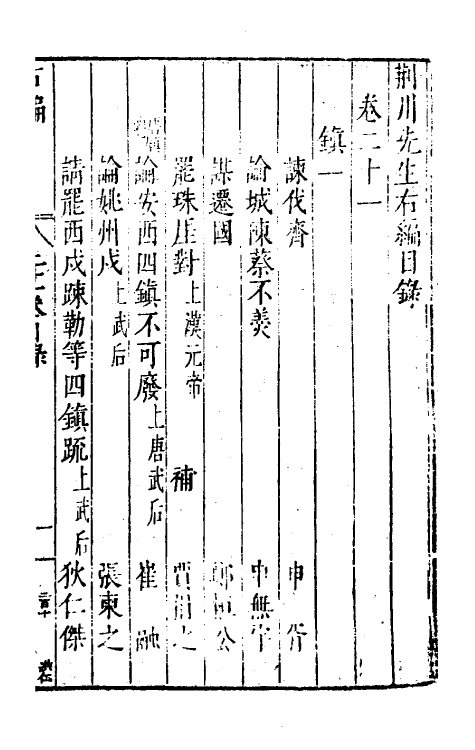 荆川先生右編目錄
卷二十一
鎮一
諫伐齊 申胥
論城陳蔡不羮 申無宇
謀遷國 鄭桓公
罷珠崖對上漢元帝 補 賈捐之
論安西四鎮不可廢上唐武后 崔融
論姚州戍上武后 張柬之
請罷西戍踈勒等四鎮䟽上武后 狄仁傑
右編
目錄
一
章